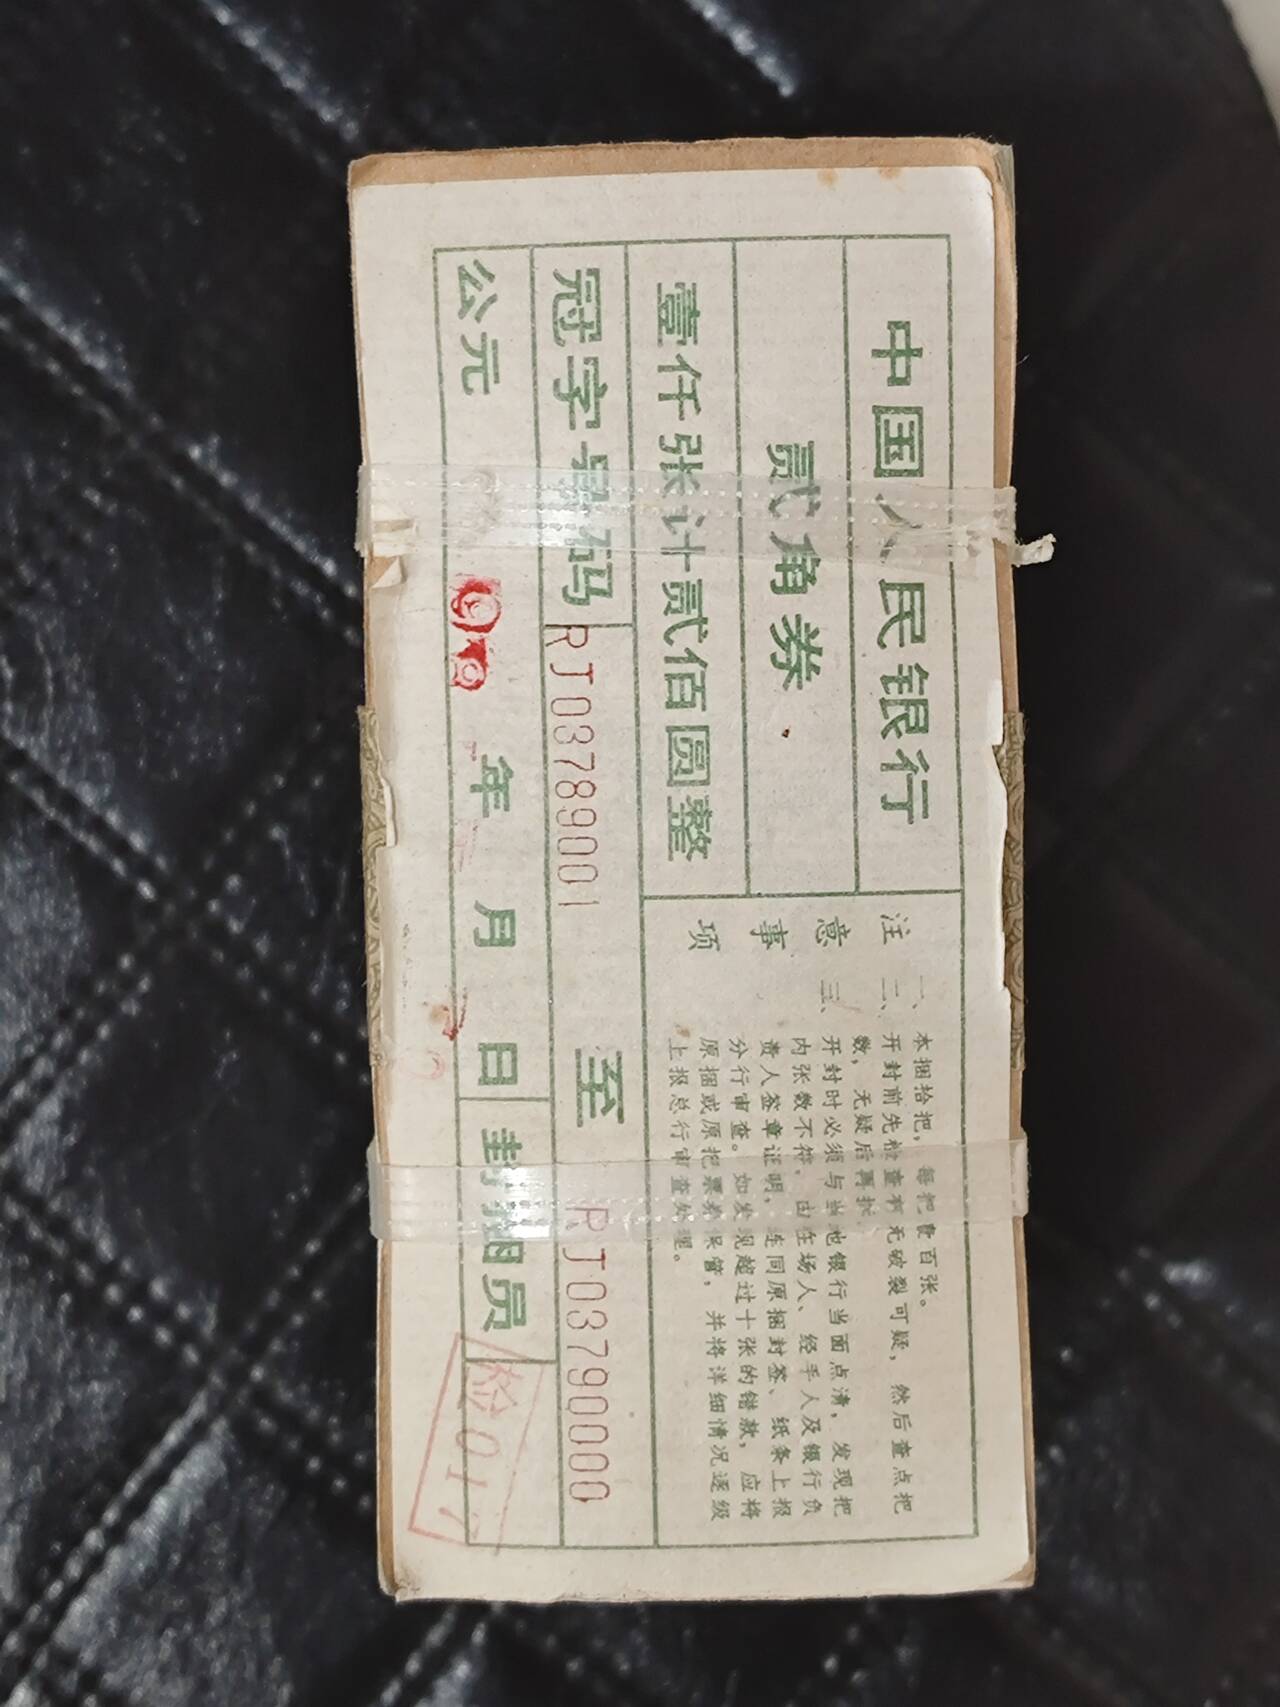 中国人民银行
贰角券
壹仟张计贰佰圆整
注意事项
一、本捆拾把，每把贰百张。
二、开封前先检查有无破裂可疑，然后查点把
数，无疑后再拆
三、开封时必须与当地银行当面点清，发现把
内张数不符，由在场人、经手人及银行负
责人签章证明，连同原捆封签、纸条上报
分行审查。如发现超过十张的错款，应将
原捆或原把票券保管，并将详细情况逐级
上报总行审查处理。
冠字号码 RJ03789001 至 RJ03790000
公元 年 月 日 封捆员
检017